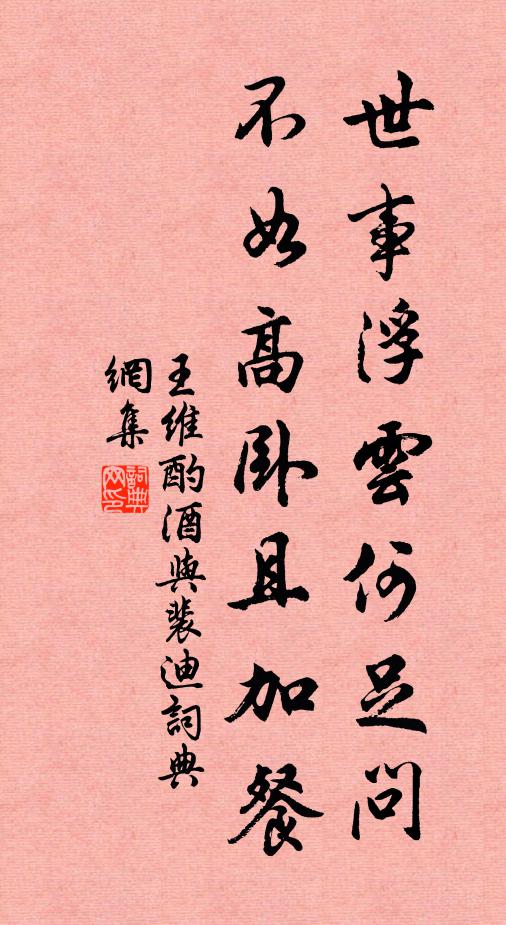 世事浮雲何足問
不如高卧且加餐
王維酌酒與裴迪詞典
網集
詞典
网印